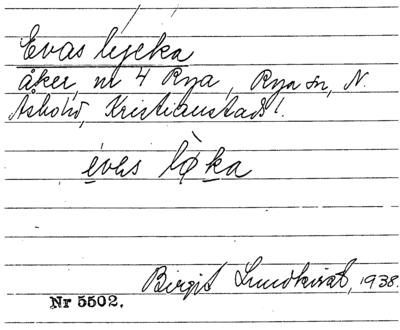 Evas lycka
åker, nr 4 Rya, Rya sn, N.
Åsbo hd, Kristianstads l.
èvas lø̀ka
Birgit Lundkvist, 1938.
Nr 5502.